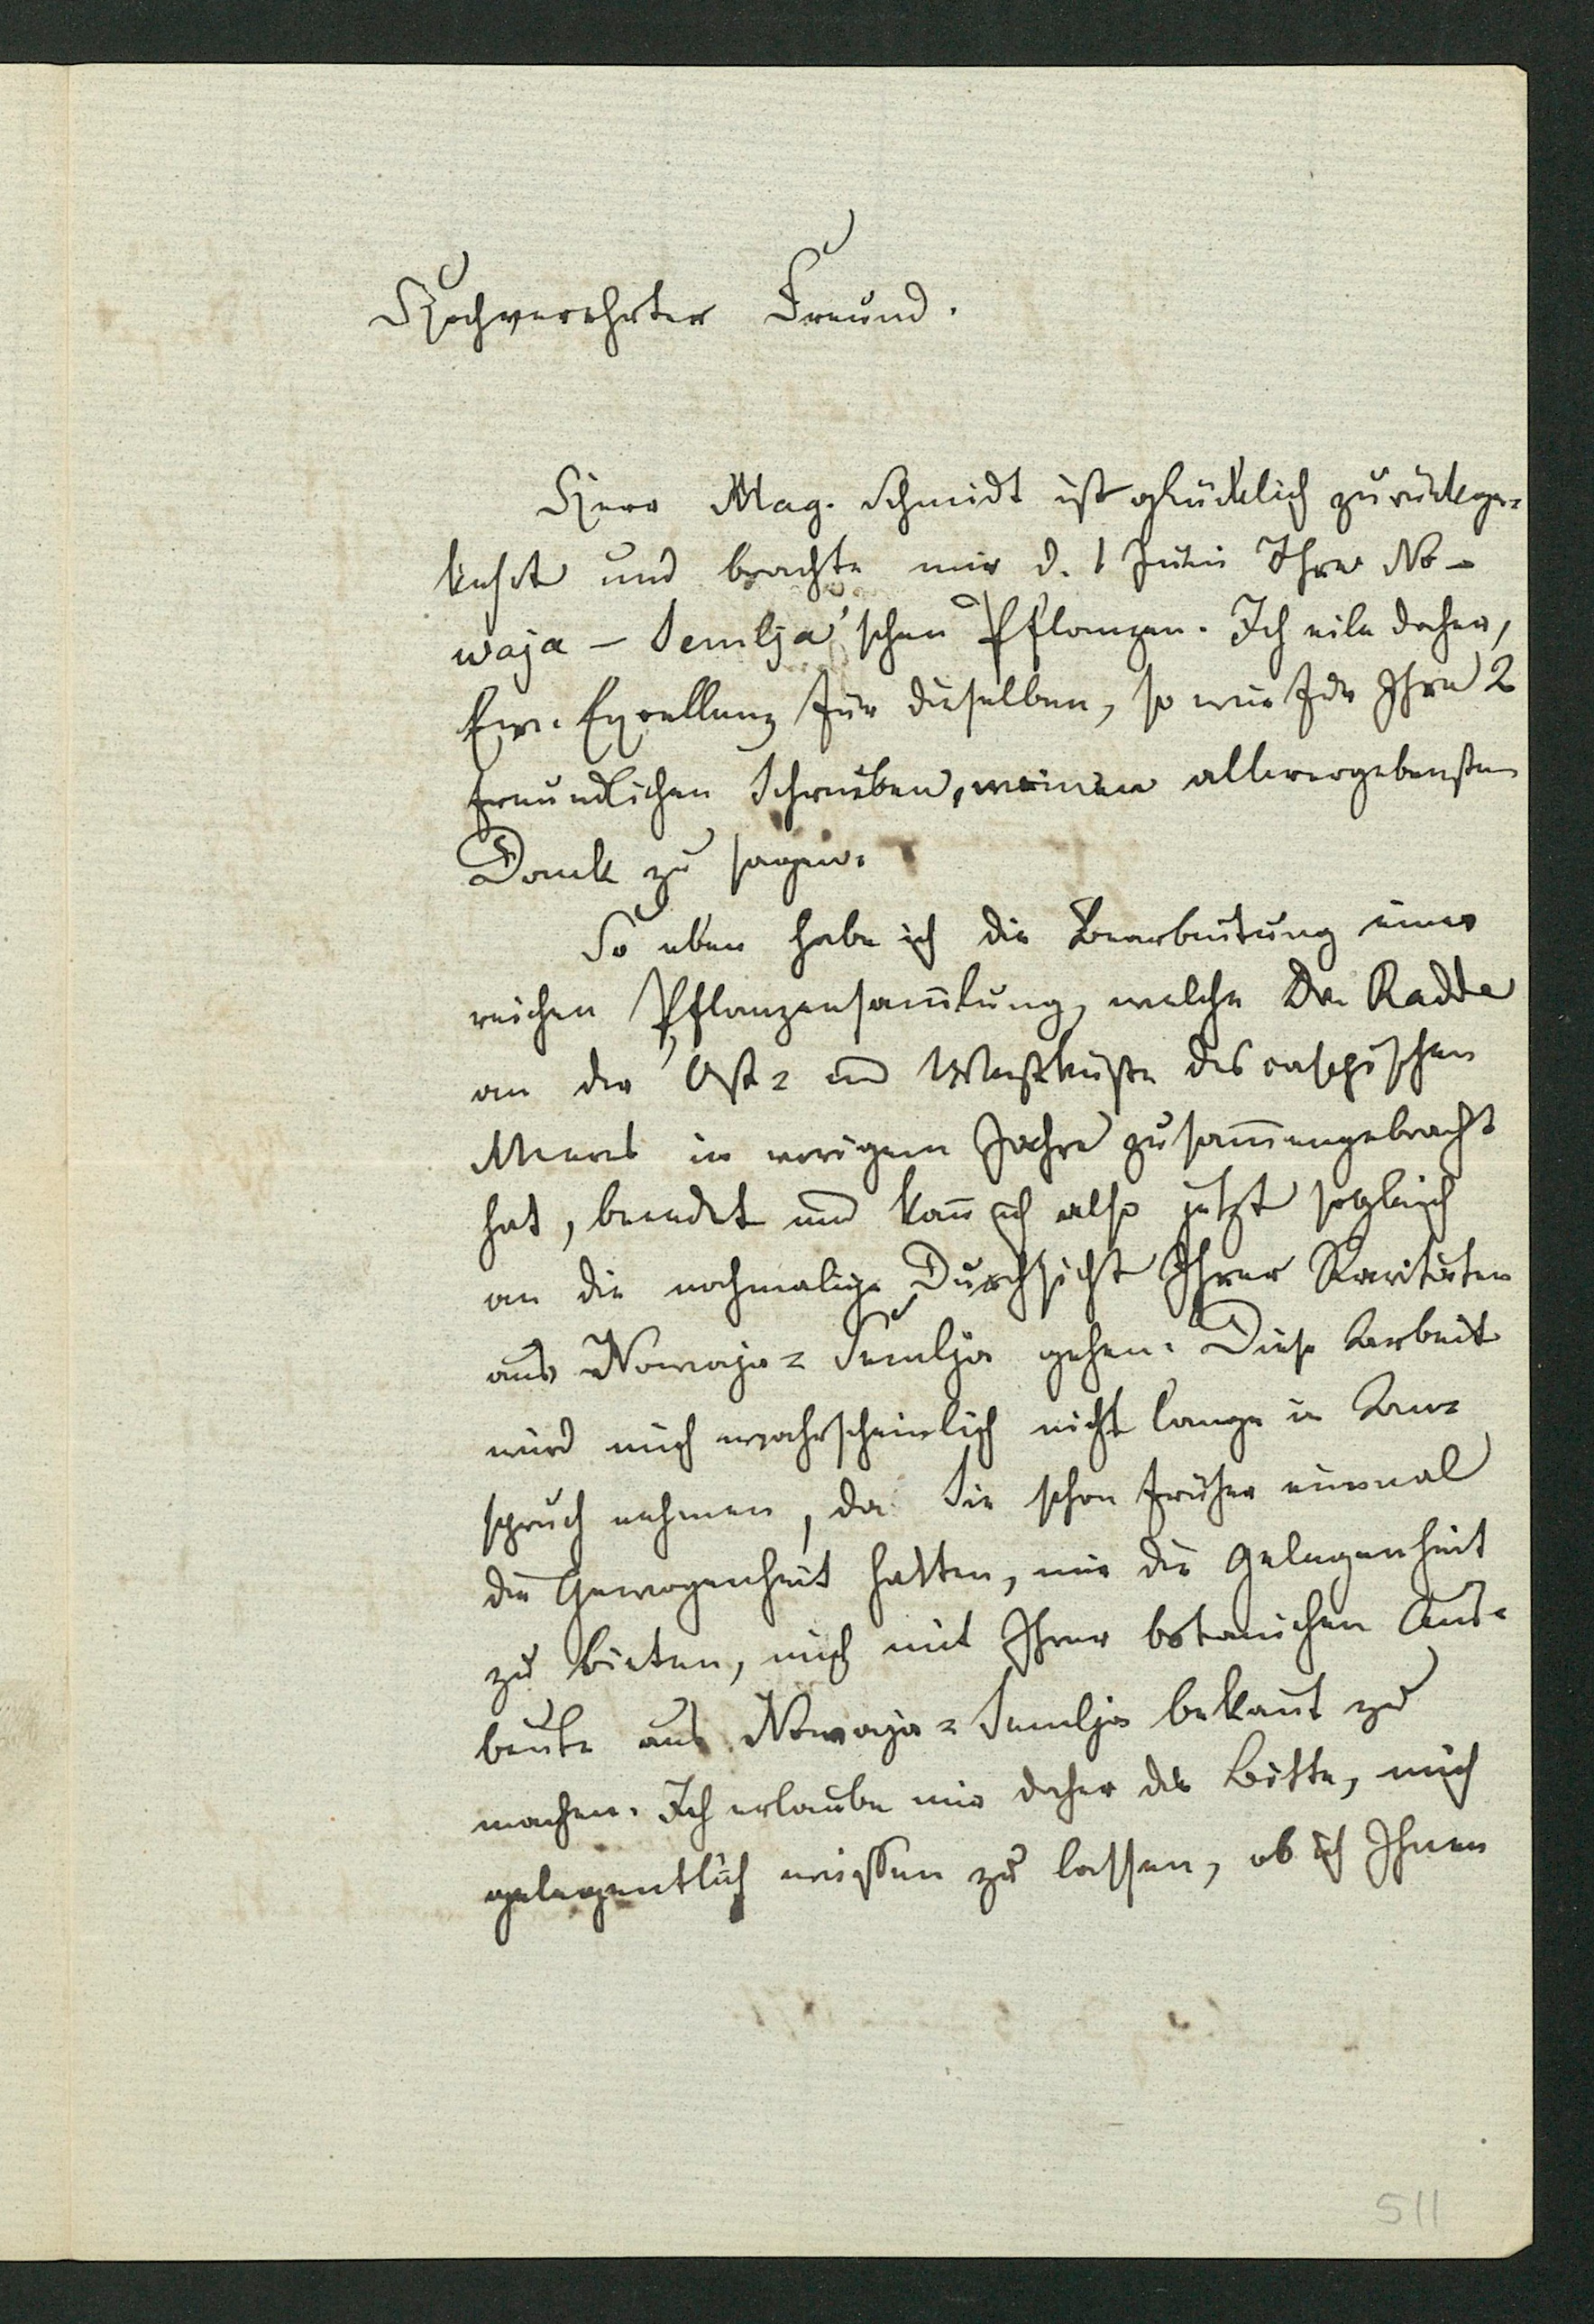 Hochverehrter Freund.
Herr Mag. Schmidt ist glücklich zurückge=
kehrt und brachte mir d. 1 Juni Ihre No-
waja - Semlja'schen Pflanzen. Ich eile daher,
Ew. Excellenz für dieselben, so wie für Ihre 2
freundlichen Schreiben, meinen allerergebensten
Dank zu sagen.
So eben habe ich die Bearbeitung einer
reichen Pflanzensam̄lung, welche Dr. Radde
an der Ost= und Westküste des caspischen
Meeres in vorigem Jahre zusam̄mengebracht
hat, beendet und kan̄ ich also jetzt sogleich
an die nochmalige Durchsicht Ihrer Raritäten
aus Nowaja=Semlja gehen. Diese Arbeit
wird mich wahrscheinlich nicht lange in An=
spruch nehmen, da Sie schon früher einmal
die Gewogenheit hatten, mir die Gelegenheit
zu bieten, mich mit Ihrer botanichen Aus=
beute aus Nowaja=Semlja bekan̄t zu
machen. Ich erlaube mir daher die Bitte, mich
gelegentlich wissen zu lassen, ob ich Ihnen
511